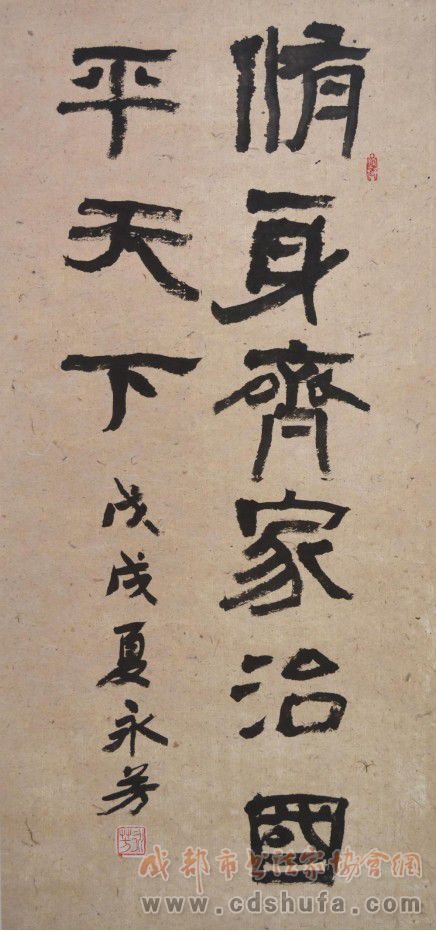 脩身齊家治國
平天下
戊戌夏永芳
成都市书法家協會網
www.cdshufa.com